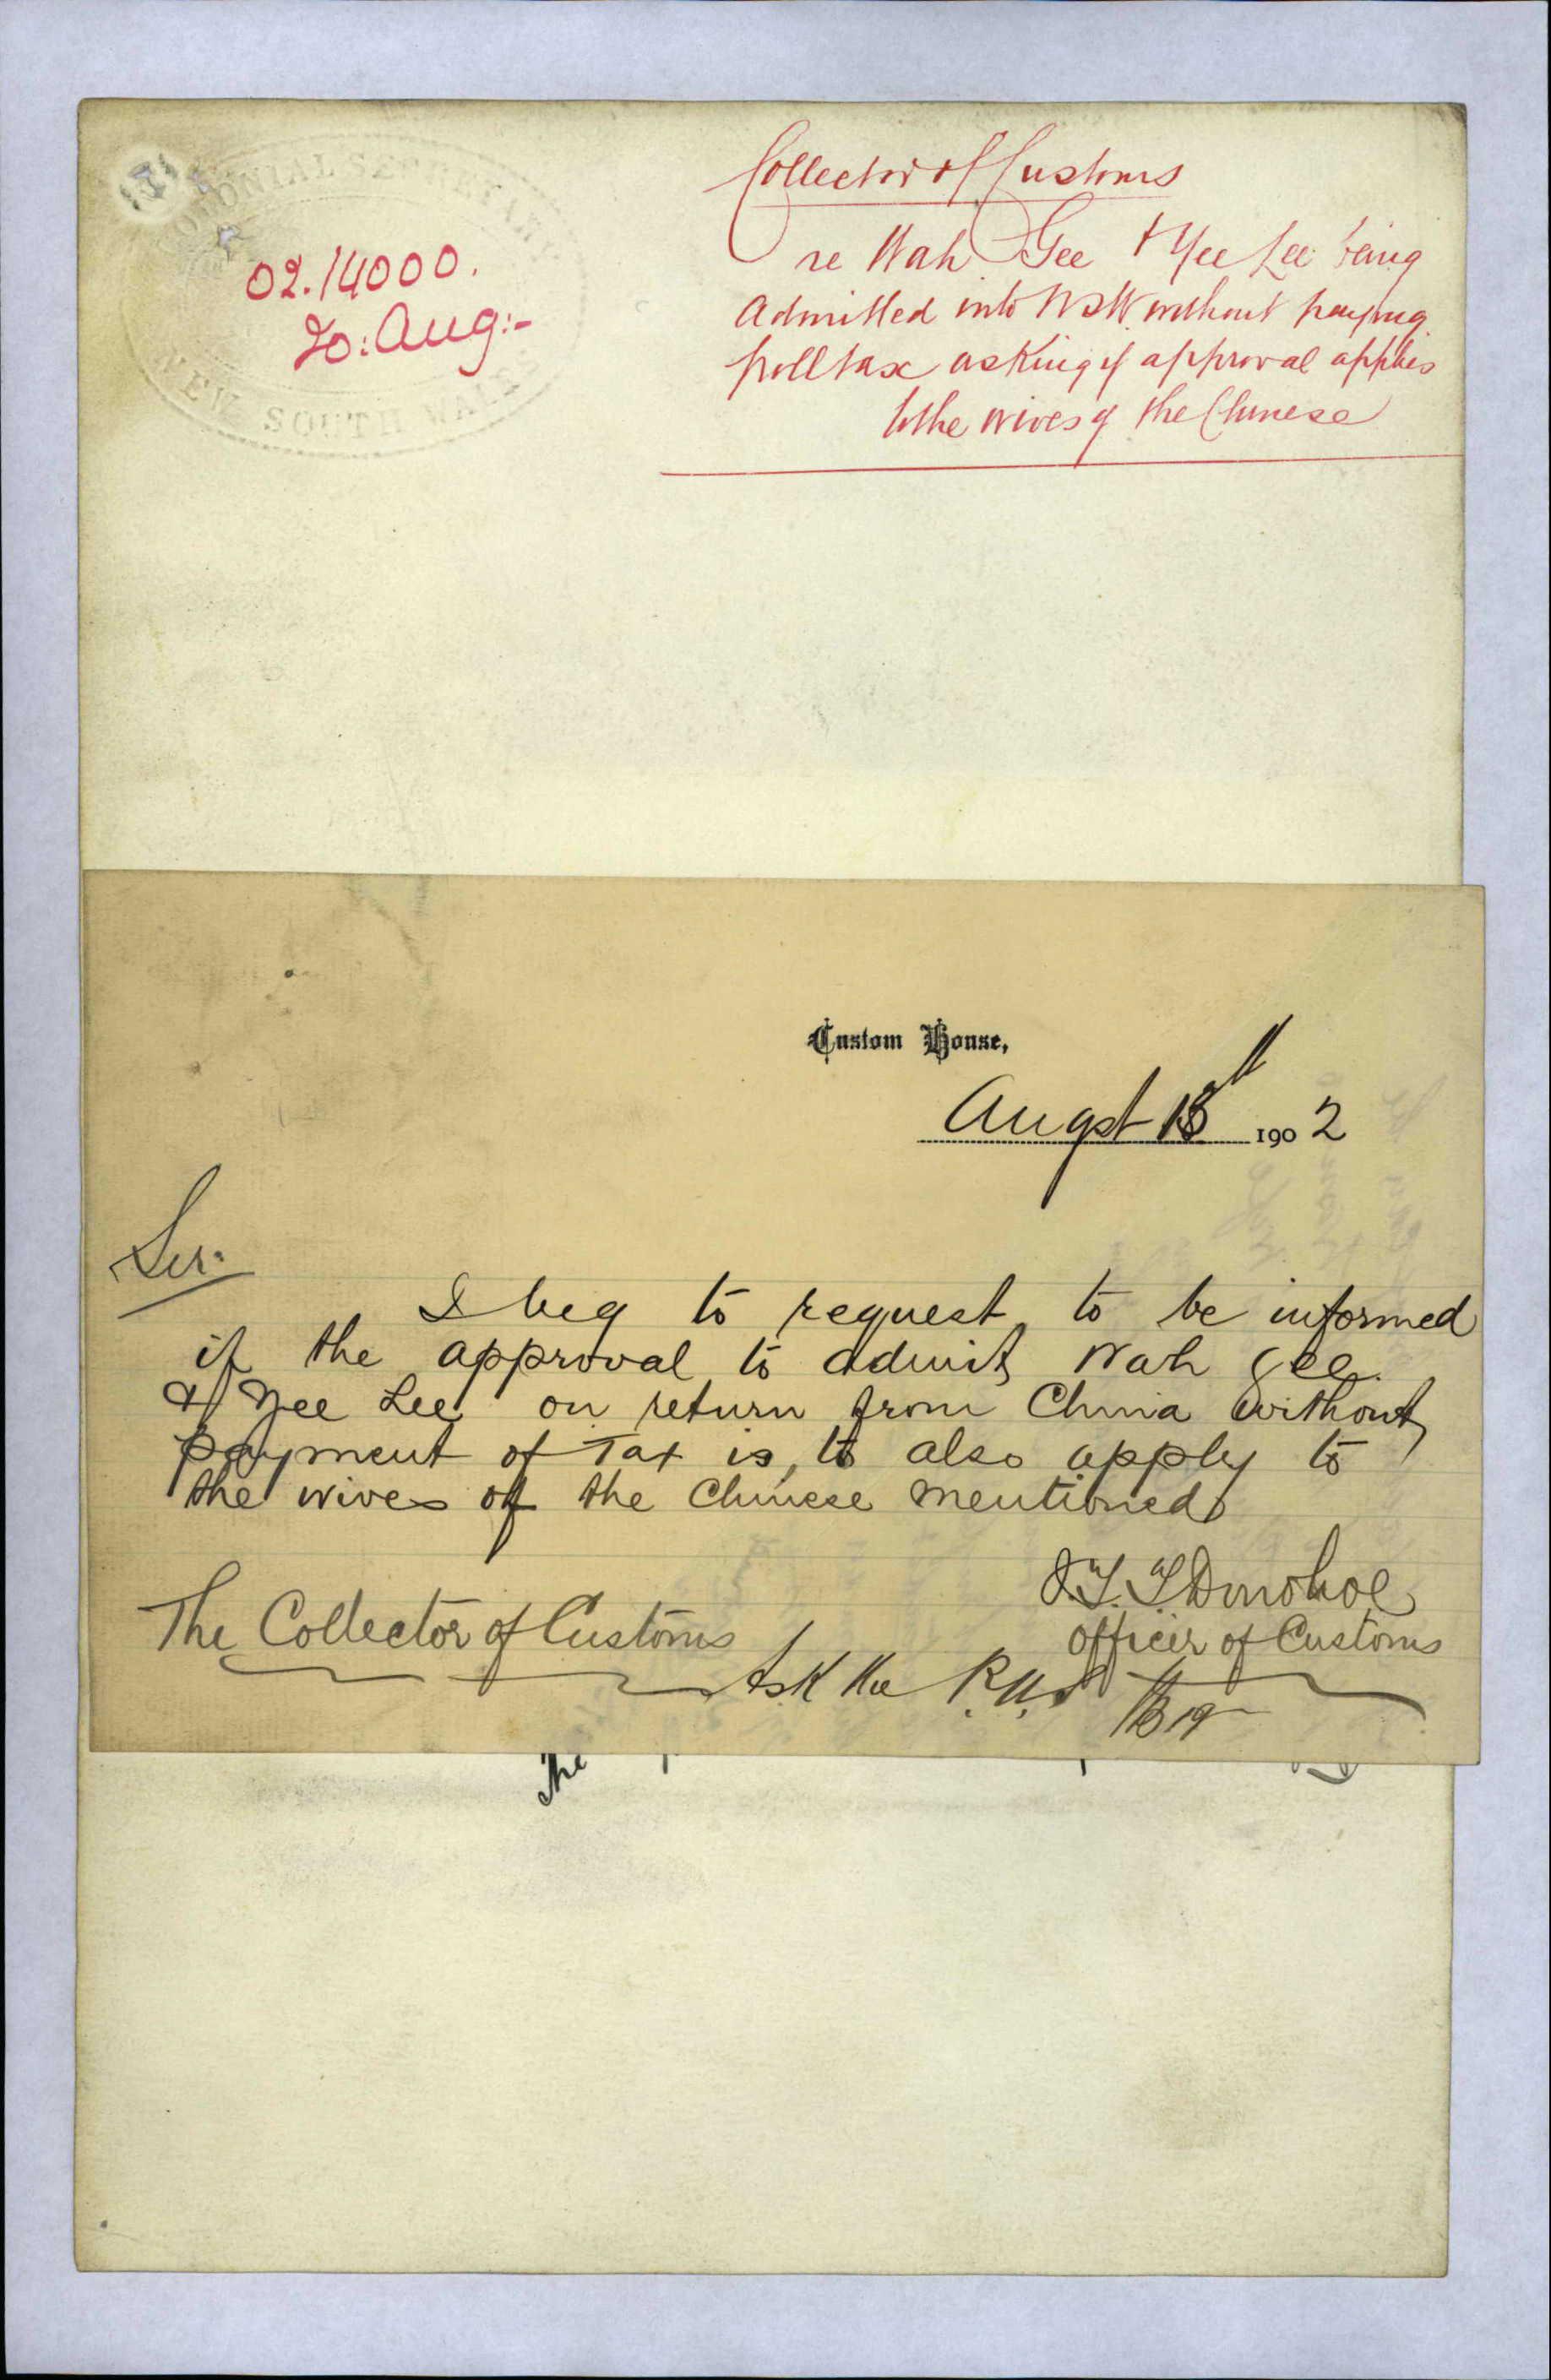 COLONIAL SECRETARY
NEW SOUTH WALES
02.14000.
20: Aug:-
Collector of Customs
re Wah Gee & Yee Lee being
admitted into NSW without paying
poll tax asking if approval applies
to the wives of the Chinese
Custom House,
Augst 18th 1902
Sir:
I beg to request to be informed
if the approval to admit Wah Gee
& Yee Lee on return from China without
payment of Tax is to also apply to
the wives of the Chinese mentioned
J.T.T. Donohoe
Officer of Customs
The Collector of Customs
Ask the P.U.S
19
the